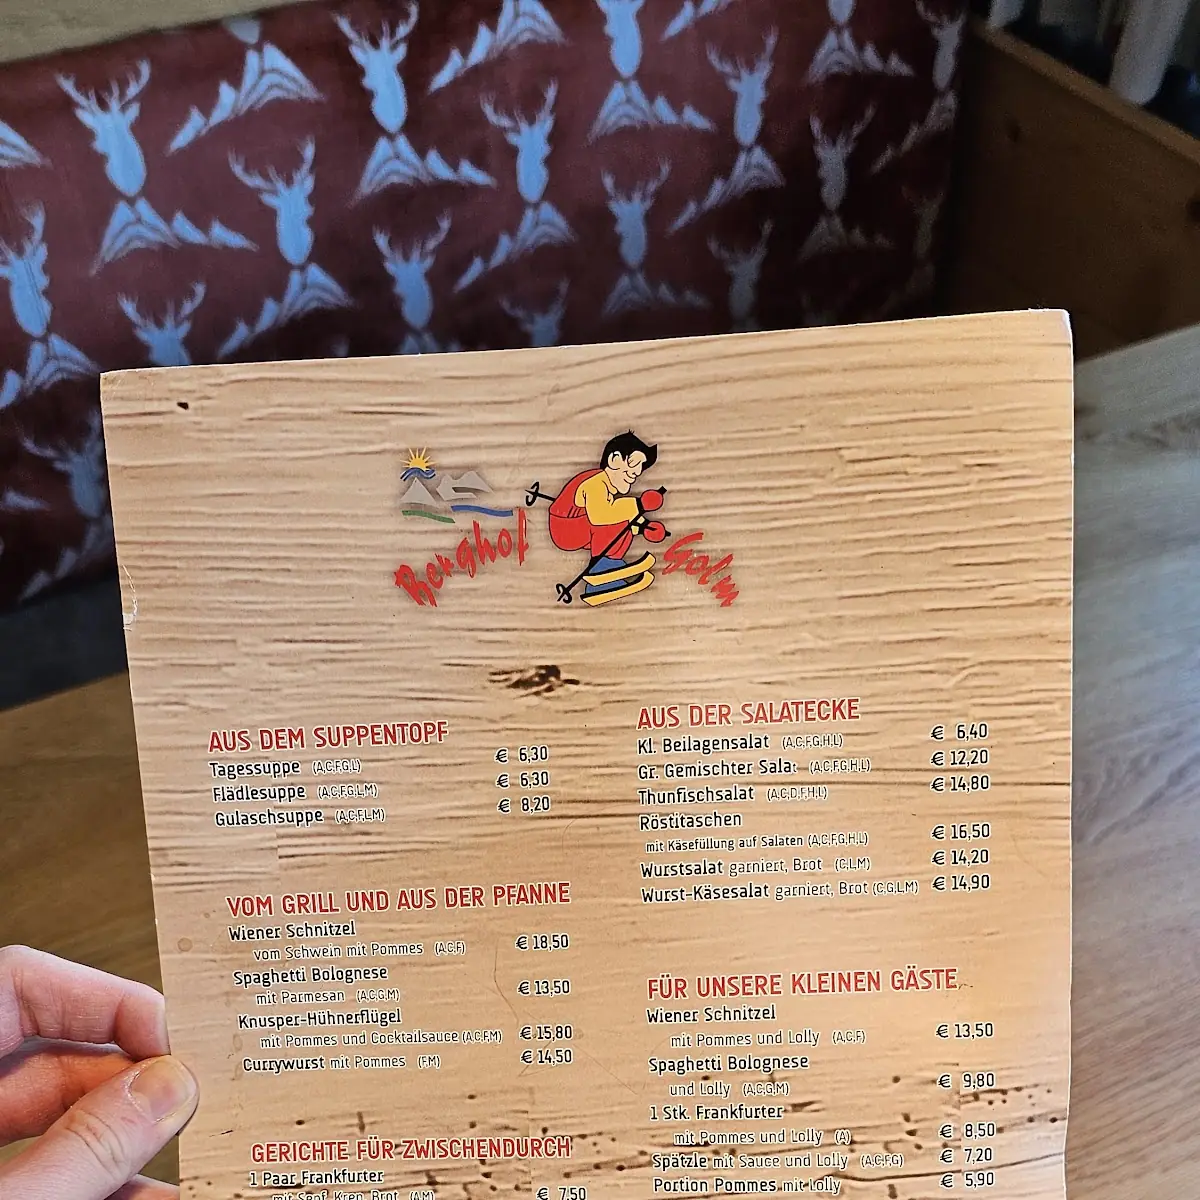 Berghof Golm
AUS DEM SUPPENTOPF
Tagessuppe (A,C,F,G,L) € 6,30
Flädlesuppe (A,C,F,G,L,M) € 6,30
Gulaschsuppe (A,C,F,L,M) € 8,20
VOM GRILL UND AUS DER PFANNE
Wiener Schnitzel
vom Schwein mit Pommes (A,C,F) € 18,50
Spaghetti Bolognese
mit Parmesan (A,C,G,M) € 13,50
Knusper-Hühnerflügel
mit Pommes und Cocktailsauce (A,C,F,M) € 15,80
Currywurst mit Pommes (F,M) € 14,50
GERICHTE FÜR ZWISCHENDURCH
1 Paar Frankfurter
mit Senf, Kren, Brot (A,M) € 7,50
AUS DER SALATECKE
Kl. Beilagensalat (A,C,F,G,H,L) € 6,40
Gr. Gemischter Salat (A,C,F,G,H,L) € 12,20
Thunfischsalat (A,C,D,F,H,L) € 14,80
Röstitaschen
mit Käsefüllung auf Salaten (A,C,F,G,H,L) € 16,50
Wurstsalat garniert, Brot (C,L,M) € 14,20
Wurst-Käsesalat garniert, Brot (C,G,L,M) € 14,90
FÜR UNSERE KLEINEN GÄSTE
Wiener Schnitzel
mit Pommes und Lolly (A,C,F) € 13,50
Spaghetti Bolognese
und Lolly (A,C,G,M) € 9,80
1 Stk. Frankfurter
mit Pommes und Lolly (A) € 8,50
Spätzle mit Sauce und Lolly (A,C,F,G) € 7,20
Portion Pommes mit Lolly € 5,90